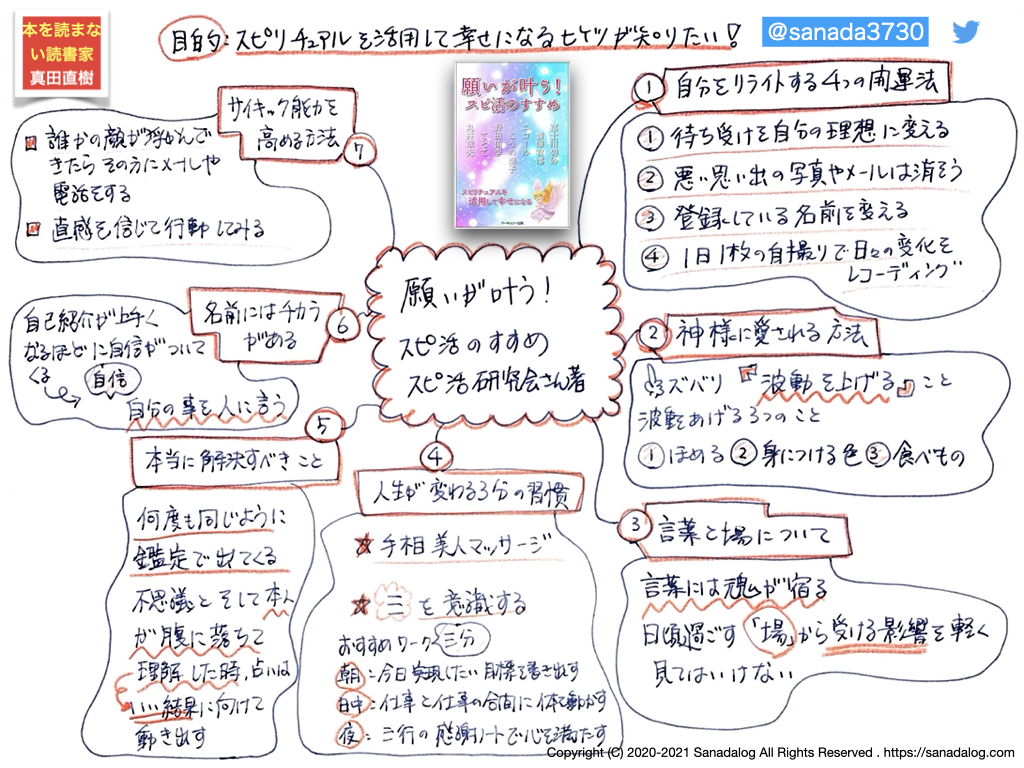 本を読まな
い読書家
真田直樹
目的:スピリチュアルを活用して幸せになるヒケツが知りたい!
@sanada3730
願いが叶う!
スピ活のすすめ
スピリチュアルを
活用して幸せになる
願いが叶う!
スピ活のすすめ
スピ活研究会さん著
① 自分をリライトする4つの開運法
① 待ち受けを自分の理想に変える
② 悪い思い出の写真やメールは消そう
③ 登録している名前を変える
④ 1日1枚の自撮りで日々の変化を
レコーディング
② 神様に愛される方法
ズバリ『波動を上げる』こと
波動あげる3つのこと
①ほめる ②身につける色 ③食べもの
③ 言葉と場について
言葉には魂が宿る
日頃過ごす「場」から受ける影響を軽く
見てはいけない
④
人生が変わる3分の習慣
★ 手相美人マッサージ
★ 三を意識する
おすすめワーク 三分
朝:今日実現したい目標を書き出す
日中:仕事と仕事の合間に体を動かす
夜:三行の感謝ノートで心を満たす
⑤
本当に解決すべきこと
何度も同じように
鑑定で出てくる
不思議とそして本人
が腹に落ちて
理解した時、占いは
いい結果に向けて
動き出す
⑥
名前にはチカラ
がある
自己紹介が上手く
なるほどに自信がついて
くる
自信
自分の事を人に言う
⑦
サイキック能力を
高める方法
誰かの顔が浮かんで
きたらその方にメールや
電話をする
直感を信じて行動してみる
Copyright (C) 2020-2021 Sanadalog All Rights Reserved . https://sanadalog.com